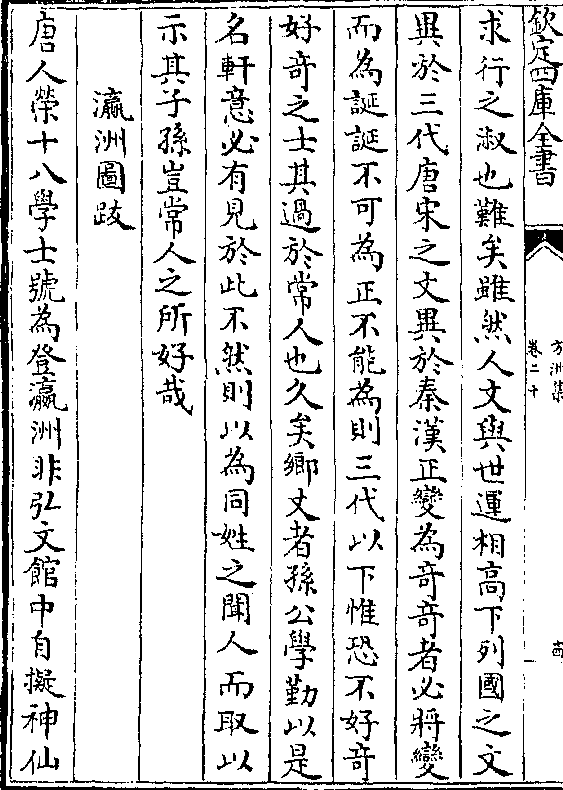 欽定四庫全書
方洲集
卷二十
求行之淑也難矣雖然人文與世運相髙下列國之文
異於三代唐宋之文異於秦漢正變為竒竒者必將變
而為誕誕不可為正不能為則三代以下惟恐不好竒
好竒之士其過於常人也久矣鄉丈者孫公學勤以是
名軒意必有見於此不然則以為同姓之聞人而取以
示其子孫豈常人之所好哉
瀛洲圖跋
唐人榮十八學士號為登瀛洲非弘文館中自擬神仙